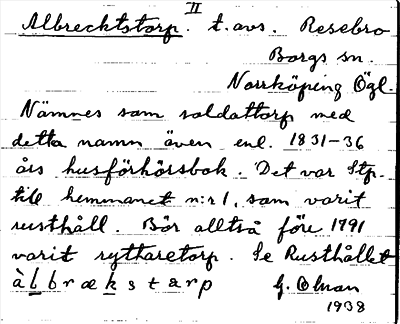 II
Albrechtstorp. t. avs. Resebro
Borgs sn.
Norrköping Ögl.
Nämnes som soldattorp med
detta namn även enl. 1831-36
års husförhörsbok. Det var Stp.
till hemmanet n:r 1, som varit
rusthåll. Bör alltså före 1791
varit ryttaretorp. Se Rusthållet
àlbrækstærp G. Olman
1938